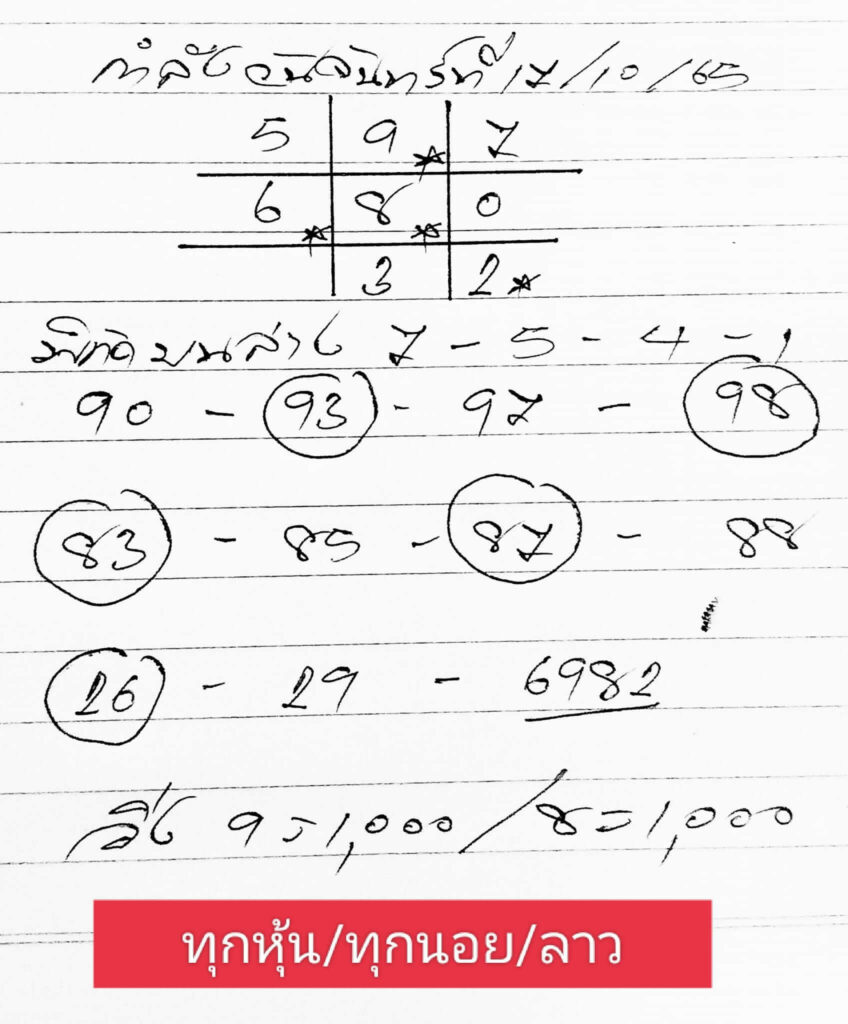 กำลังวันจันทร์ที่ 17/10/65
5 9 7
6 8 0
3 2
บน ล่าง 7 - 5 - 4 - 1
90 - 93 - 97 - 98
83 - 85 - 87 - 88
26 - 29 - 6982
วิ่ง 9=1,000/8=1,000
ทุกหุ้น/ทุกนอย/ลาว